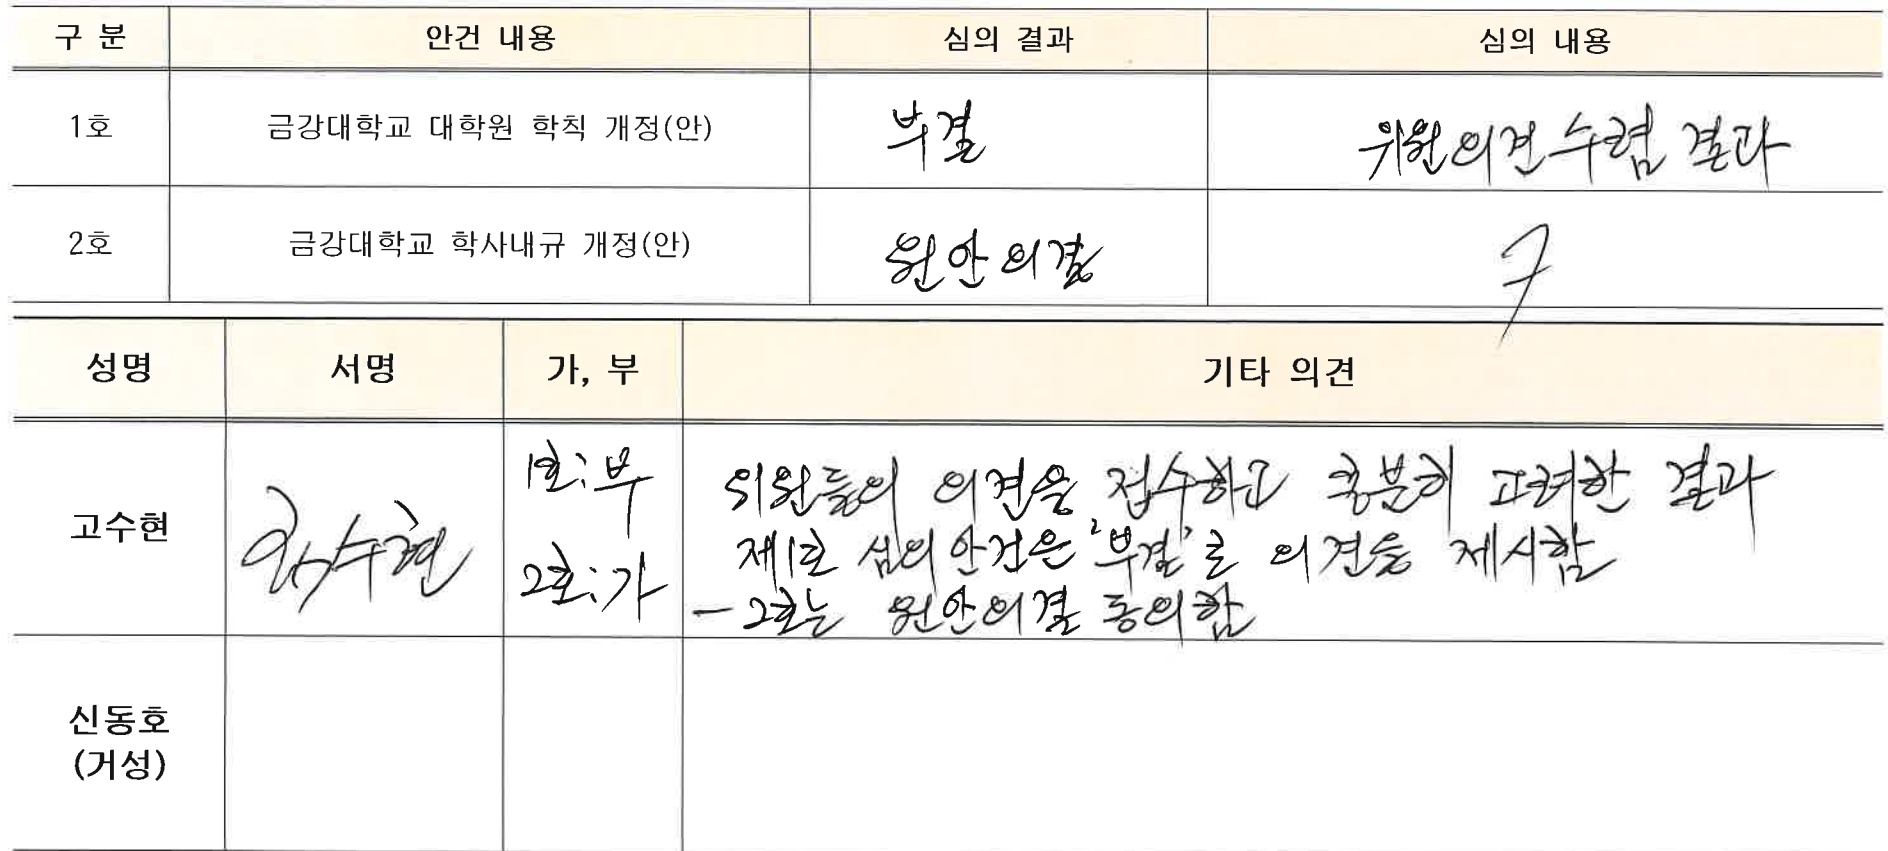 구 분 안건 내용 심의 결과 심의 내용
1호 금강대학교 대학원 학칙 개정(안) 부결 위원의견수렴 결과
2호 금강대학교 학사내규 개정(안) 원안의결
성명 서명 가, 부 기타 의견
고수현 고수현 1호:부 위원들의 의견을 접수하고 충분히 고려한 결과
제1호 심의안건은 '부결'로 의견을 제시함
2호:가 - 2호는 원안의결 동의함
신동호
(거성)